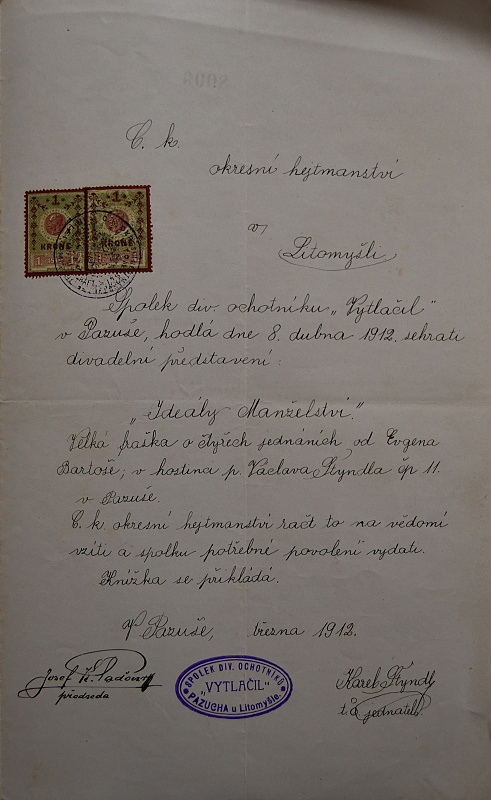 C. k.
okresní hejtmanství
v
Litomyšli
1 1
KRONE KRONE
Spolek div. ochotníku „Vytlačil"
v Pazuše, hodlá dne 8. dubna 1912, sehrati
divadelní představení:
„Ideály Manželství."
Velká fraška o čtyřech jednáních, od Evgena
Bartoše; v hostinci p. Václava Štyndla čp 11.
v Pazuše.
C. k. okresní hejtmanství račt to na vědomí
vzíti a spolku potřební povolení vydati.
Knížka se přikládá.
V Pazuše, března 1912.
Josef
předseda
SPOLEK DIV. OCHOTNÍKŮ
„VYTLAČIL"
PAZUCHA u Litomyšle.
Karel Štyndl
t. č. jednatel.